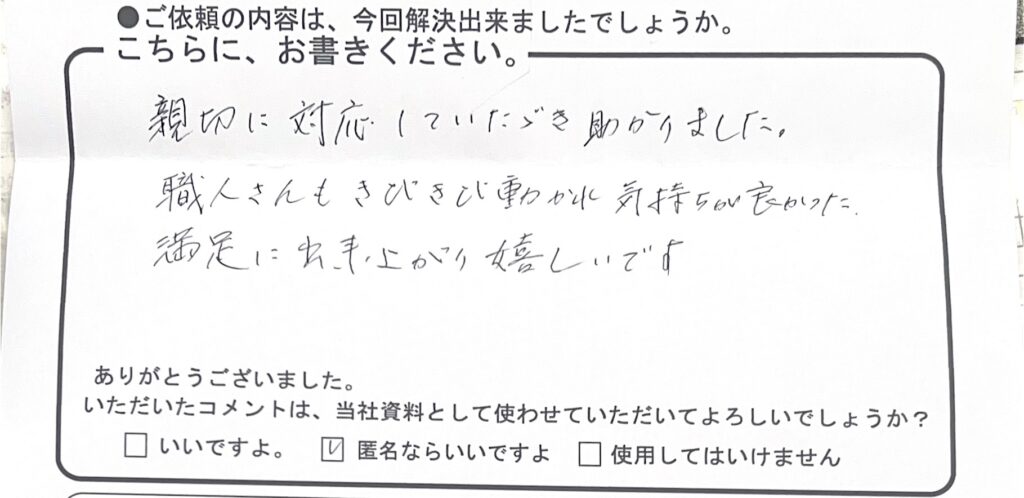 ●ご依頼の内容は、今回解決出来ましたでしょうか。
こちらに、お書きください。
親切に対応していただき助かりました。
職人さんもきびきび動かれ気持ちが良かった.
満足に出来上がり嬉しいです
ありがとうございました。
いただいたコメントは、当社資料として使わせていただいてよろしいでしょうか？
□ いいですよ。 ☑ 匿名ならいいですよ □ 使用してはいけません